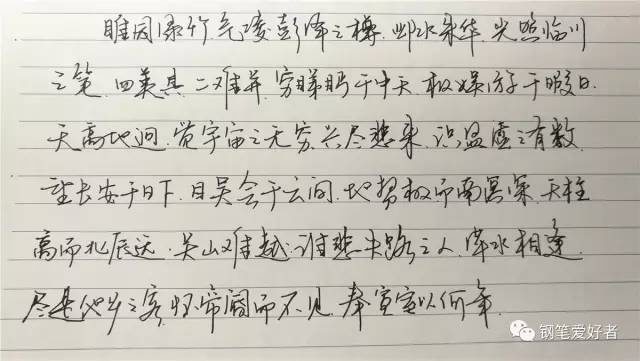 睢园绿竹,气凌彭泽之樽,邺水朱华,光照临川
之笔,四美具,二难并,穷睇眄于中天,极娱游于暇日,
天高地迥,觉宇宙之无穷,兴尽悲来,识盈虚之有数,
望长安于日下,目吴会于云间,地势极而南溟深,天柱
高而北辰远,关山难越,谁悲失路之人,萍水相逢,
尽是他乡之客,怀帝阍而不见,奉宣室以何年,
钢笔爱好者